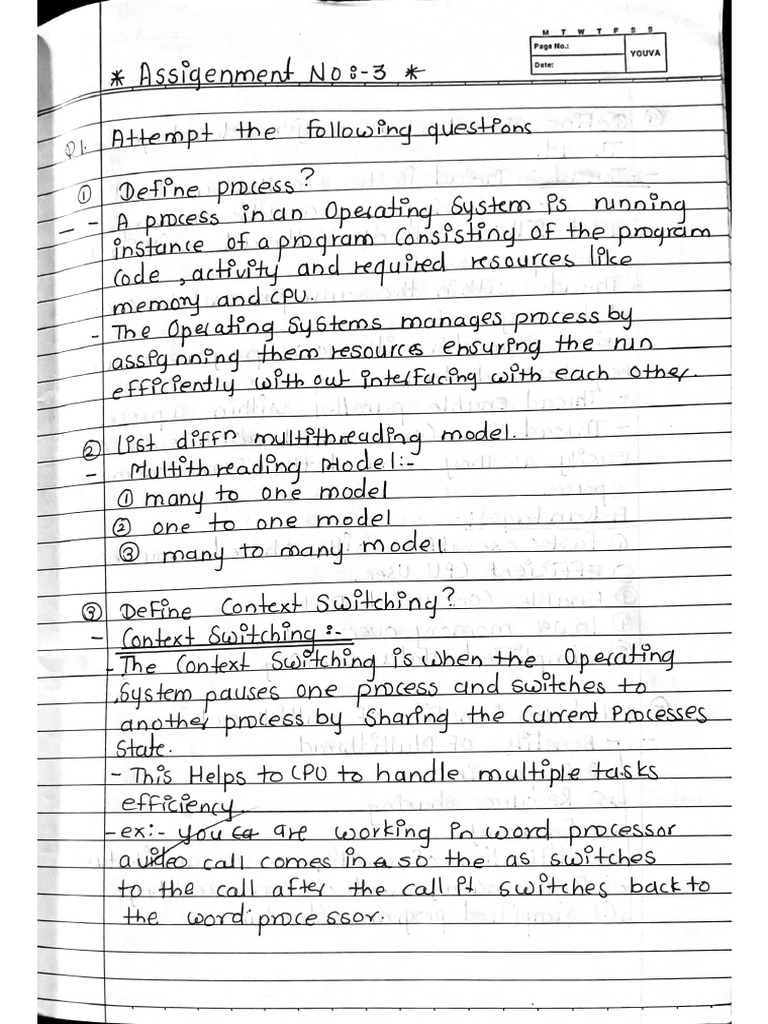 M T W T F S S
Page No.:
YOUVA
Date:
* Assigenment No:-3 *
Q1. Attempt the following questions
① Define process?
- - A process in an Operating System is running
instance of a program consisting of the program
code, activity and required resources like
memory and CPU.
- The Operating Systems manages process by
assignning them resources ensuring the run
efficiently with out interfacing with each other.
② List diffn multithreading model.
- Multithreading Model:-
① many to one model
② one to one model
③ many to many model
③ Define Context Switching?
- Context Switching:-
- The Context Switching is when the Operating
System pauses one process and switches to
another process by Sharing the Current Processes
State.
- This Helps to CPU to handle multiple tasks
efficiency.
- ex:- you are working in word processor
a video call comes in so the as switches
to the call after the call it switches back to
the word processor.